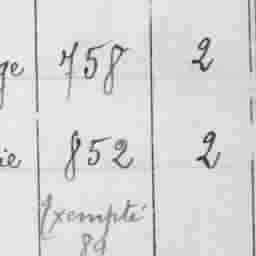 ge 758 2
ie 852 2
Exempté
89